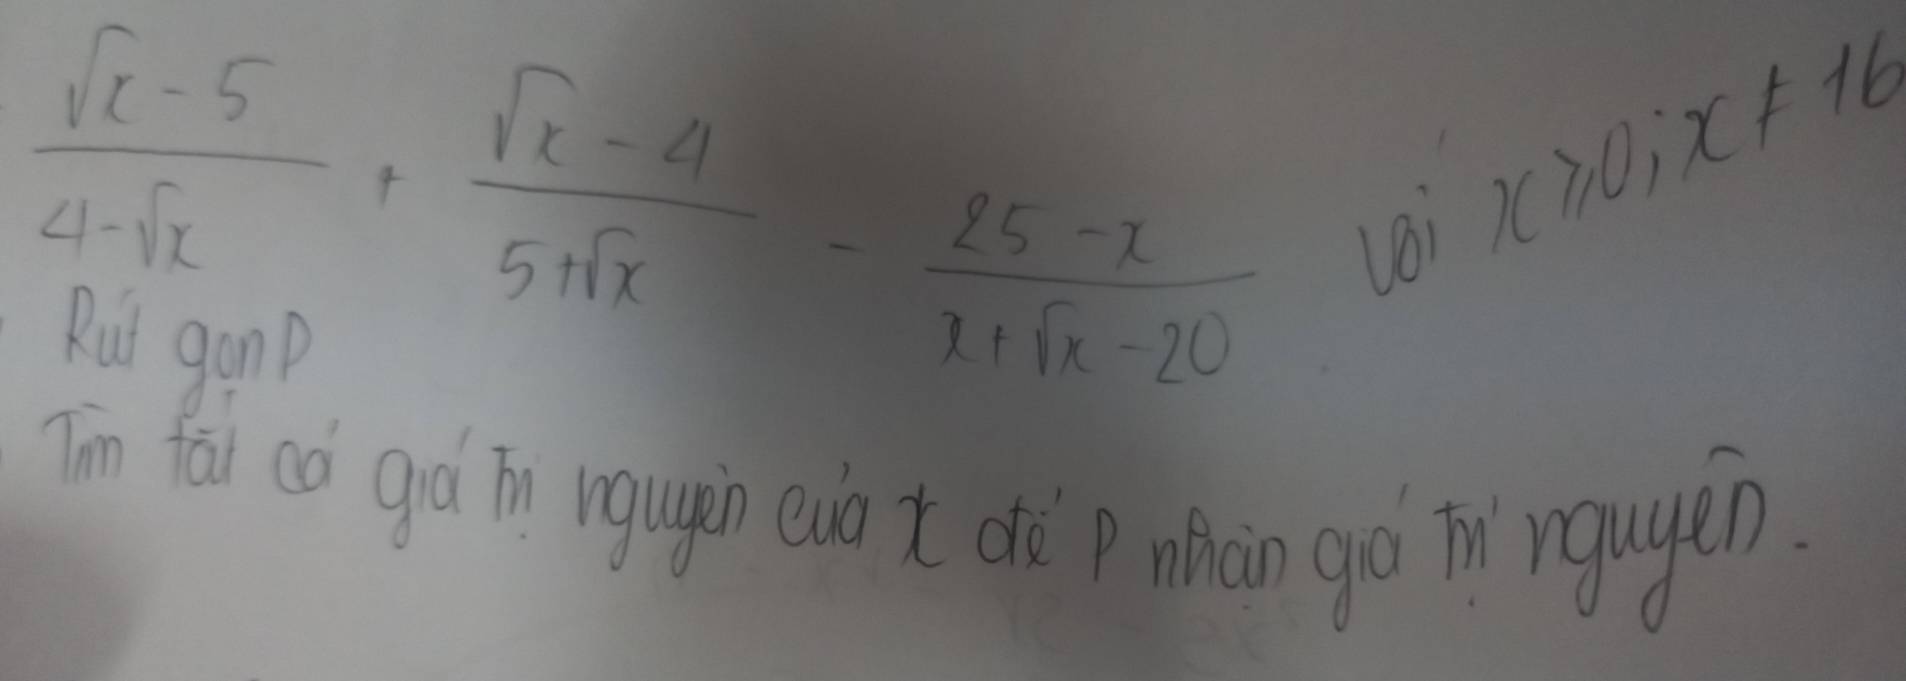 $\frac{\sqrt{x}-5}{4-\sqrt{x}} + \frac{\sqrt{x}-4}{5+\sqrt{x}} - \frac{25-x}{x+\sqrt{x}-20}$ với x ⩾ 0; x ≠ 16
Rút gọn P
Tìm tất cả giá trị nguyên của x để P nhận giá trị nguyên.